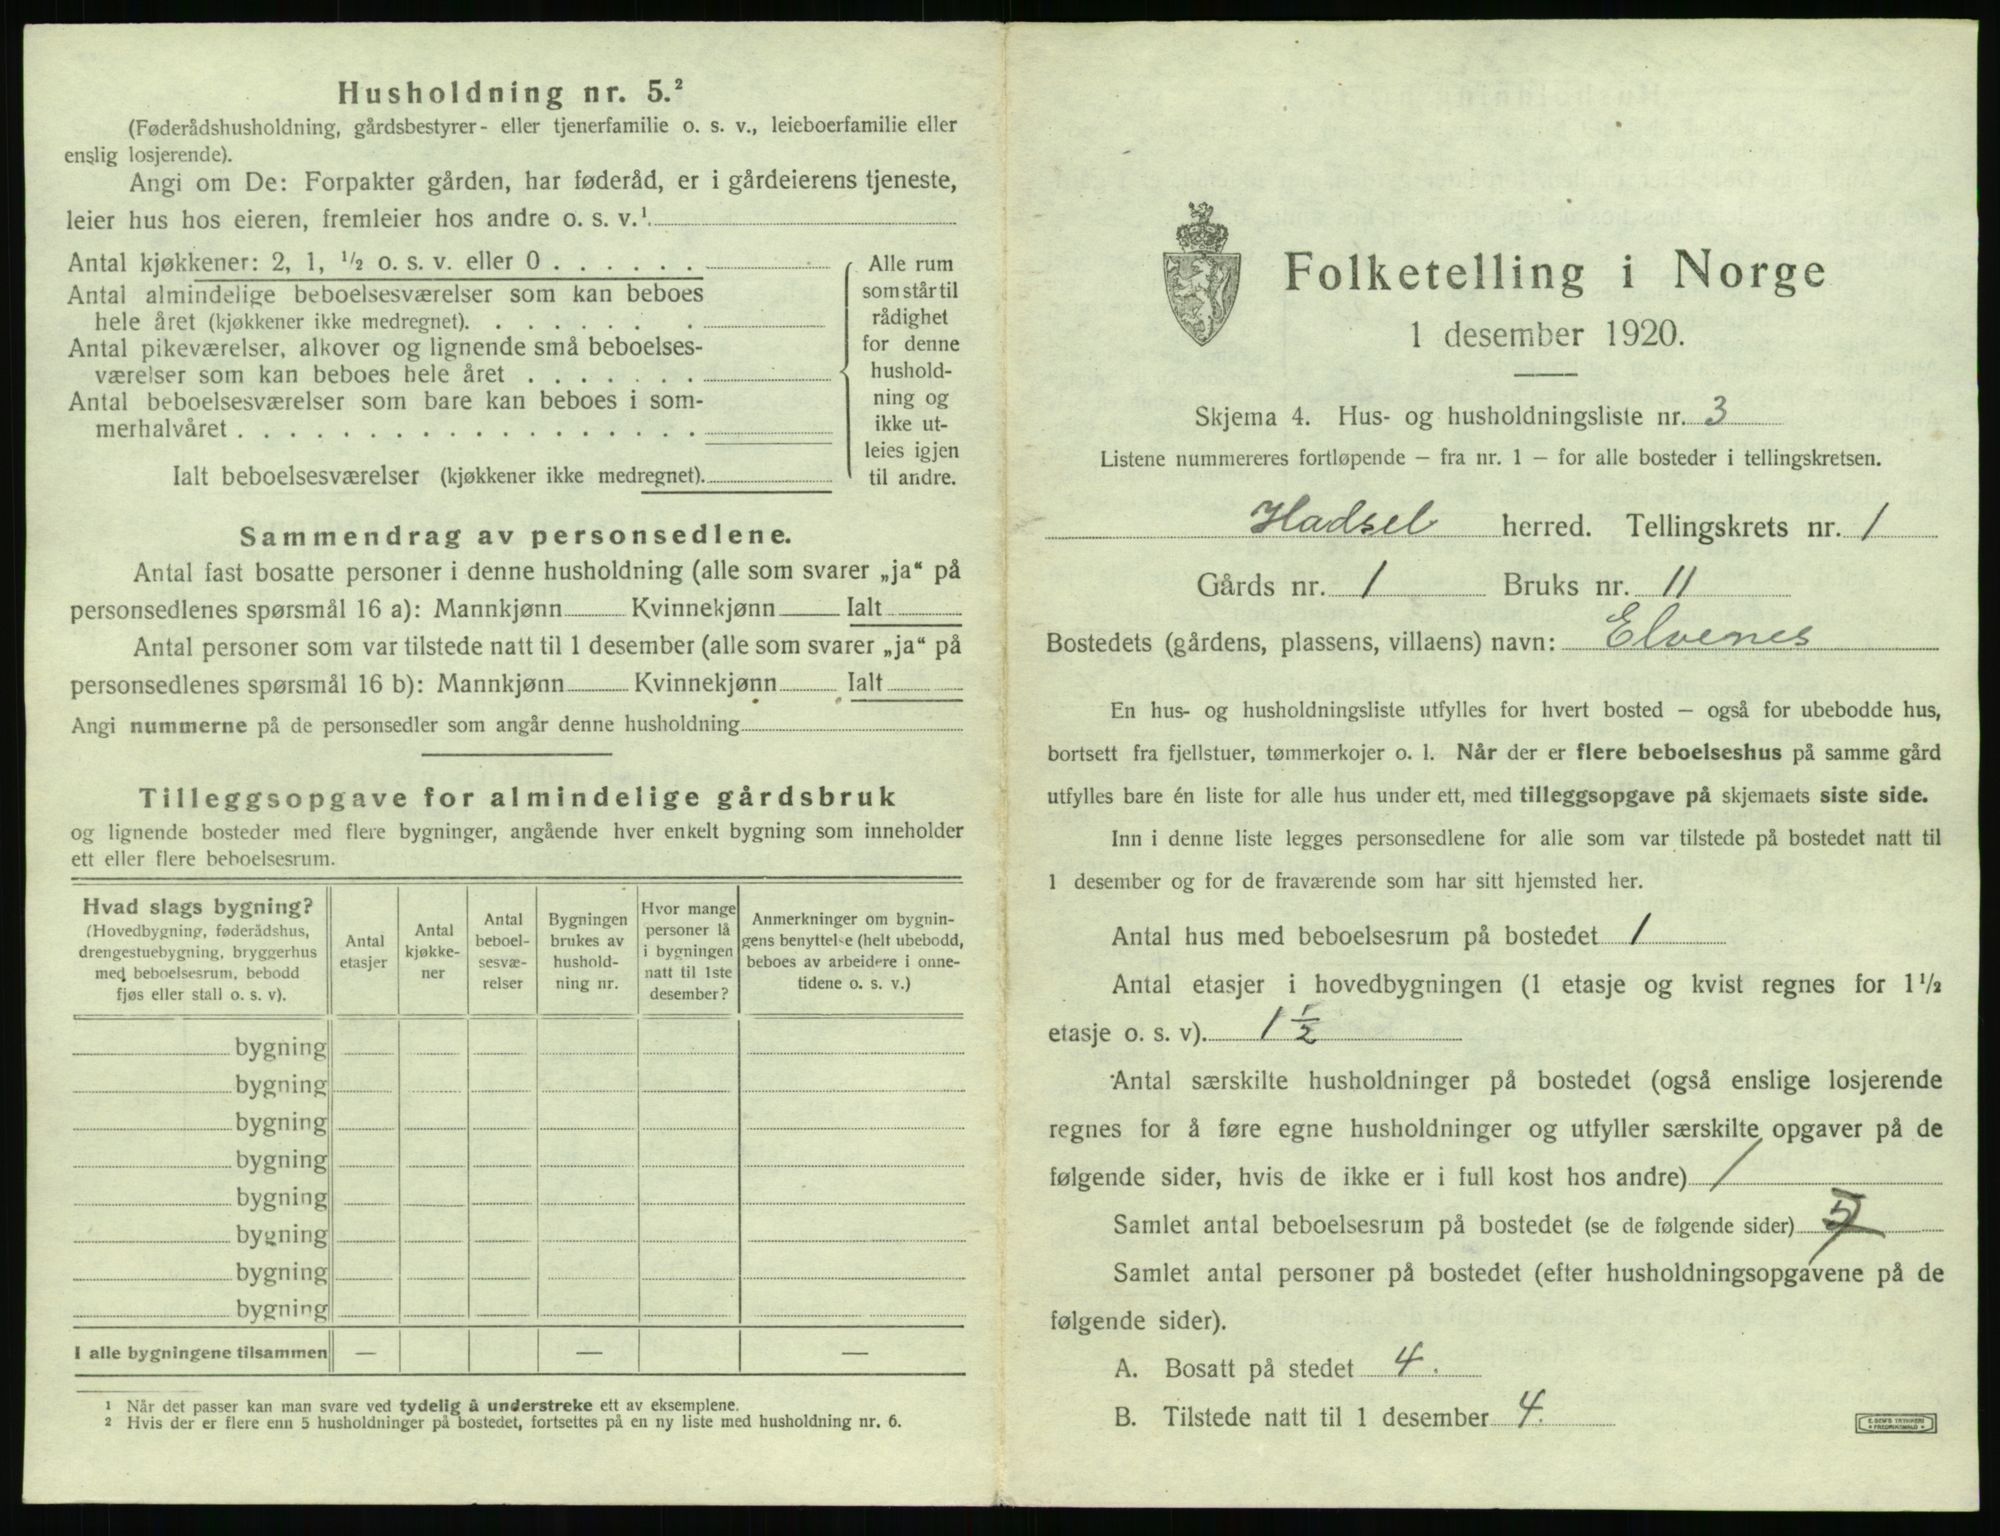 Husholdning nr. 5.²
(Føderådshusholdning, gårdsbestyrer- eller tjenerfamilie o. s. v., leieboerfamilie eller
enslig losjerende).
Angi om De: Forpakter gården, har føderåd, er i gårdeierens tjeneste,
leier hus hos eieren, fremleier hos andre o. s. v.¹
Antal kjøkkener: 2, 1, ½ o. s. v. eller 0 . . . . . .
Antal almindelige beboelsesværelser som kan beboes
hele året (kjøkkener ikke medregnet). . . . . . . .
Antal pikeværelser, alkover og lignende små beboelses-
værelser som kan beboes hele året . . . . . . .
Antal beboelsesværelser som bare kan beboes i som-
merhalvåret . . . . . . . . . . . . . . . . . .
Ialt beboelsesværelser (kjøkkener ikke medregnet).
Alle rum
som står til
rådighet
for denne
hushold-
ning og
ikke ut-
leies igjen
til andre.
Sammendrag av personsedlene.
Antal fast bosatte personer i denne husholdning (alle som svarer „ja“ på
personsedlenes spørsmål 16 a): Mannkjønn Kvinnekjønn Ialt
Antal personer som var tilstede natt til 1 desember (alle som svarer „ja“ på
personsedlenes spørsmål 16 b): Mannkjønn Kvinnekjønn Ialt
Angi nummerne på de personsedler som angår denne husholdning
Tilleggsopgave for almindelige gårdsbruk
og lignende bosteder med flere bygninger, angående hver enkelt bygning som inneholder
ett eller flere beboelsesrum.
Hvad slags bygning?
(Hovedbygning, føderådshus,
drengestuebygning, bryggerhus
med beboelsesrum, bebodd
fjøs eller stall o. s. v).
Antal
etasjer
Antal
kjøkke-
ner
Antal
beboel-
sesvæ-
relser
Bygningen
brukes av
hushold-
ning nr.
Hvor mange
personer lå
i bygningen
natt til 1ste
desember?
Anmerkninger om bygnin-
gens benyttelse (helt ubebodd,
beboes av arbeidere i onne-
tidene o. s. v.)
bygning
bygning
bygning
bygning
bygning
bygning
bygning
bygning
I alle bygningene tilsammen — — —
1 Når det passer kan man svare ved tydelig å understreke ett av eksemplene.
2 Hvis der er flere enn 5 husholdninger på bostedet, fortsettes på en ny liste med husholdning nr. 6.
Folketelling i Norge
1 desember 1920.
Skjema 4. Hus- og husholdningsliste nr. 3
Listene nummereres fortløpende – fra nr. 1 – for alle bosteder i tellingskretsen.
Hadsel herred. Tellingskrets nr. 1
Gårds nr. 1 Bruks nr. 11
Bostedets (gårdens, plassens, villaens) navn: Elvenes
En hus- og husholdningsliste utfylles for hvert bosted – også for ubebodde hus,
bortsett fra fjellstuer, tømmerkojer o. l. Når der er flere beboelseshus på samme gård
utfylles bare én liste for alle hus under ett, med tilleggsopgave på skjemaets siste side.
Inn i denne liste legges personsedlene for alle som var tilstede på bostedet natt til
1 desember og for de fraværende som har sitt hjemsted her.
Antal hus med beboelsesrum på bostedet 1
Antal etasjer i hovedbygningen (1 etasje og kvist regnes for 1½
etasje o. s. v). 1 ½
Antal særskilte husholdninger på bostedet (også enslige losjerende
regnes for å føre egne husholdninger og utfyller særskilte opgaver på de
følgende sider, hvis de ikke er i full kost hos andre) 1
Samlet antal beboelsesrum på bostedet (se de følgende sider)
Samlet antal personer på bostedet (efter husholdningsopgavene på de
følgende sider).
A. Bosatt på stedet 4.
B. Tilstede natt til 1 desember 4.